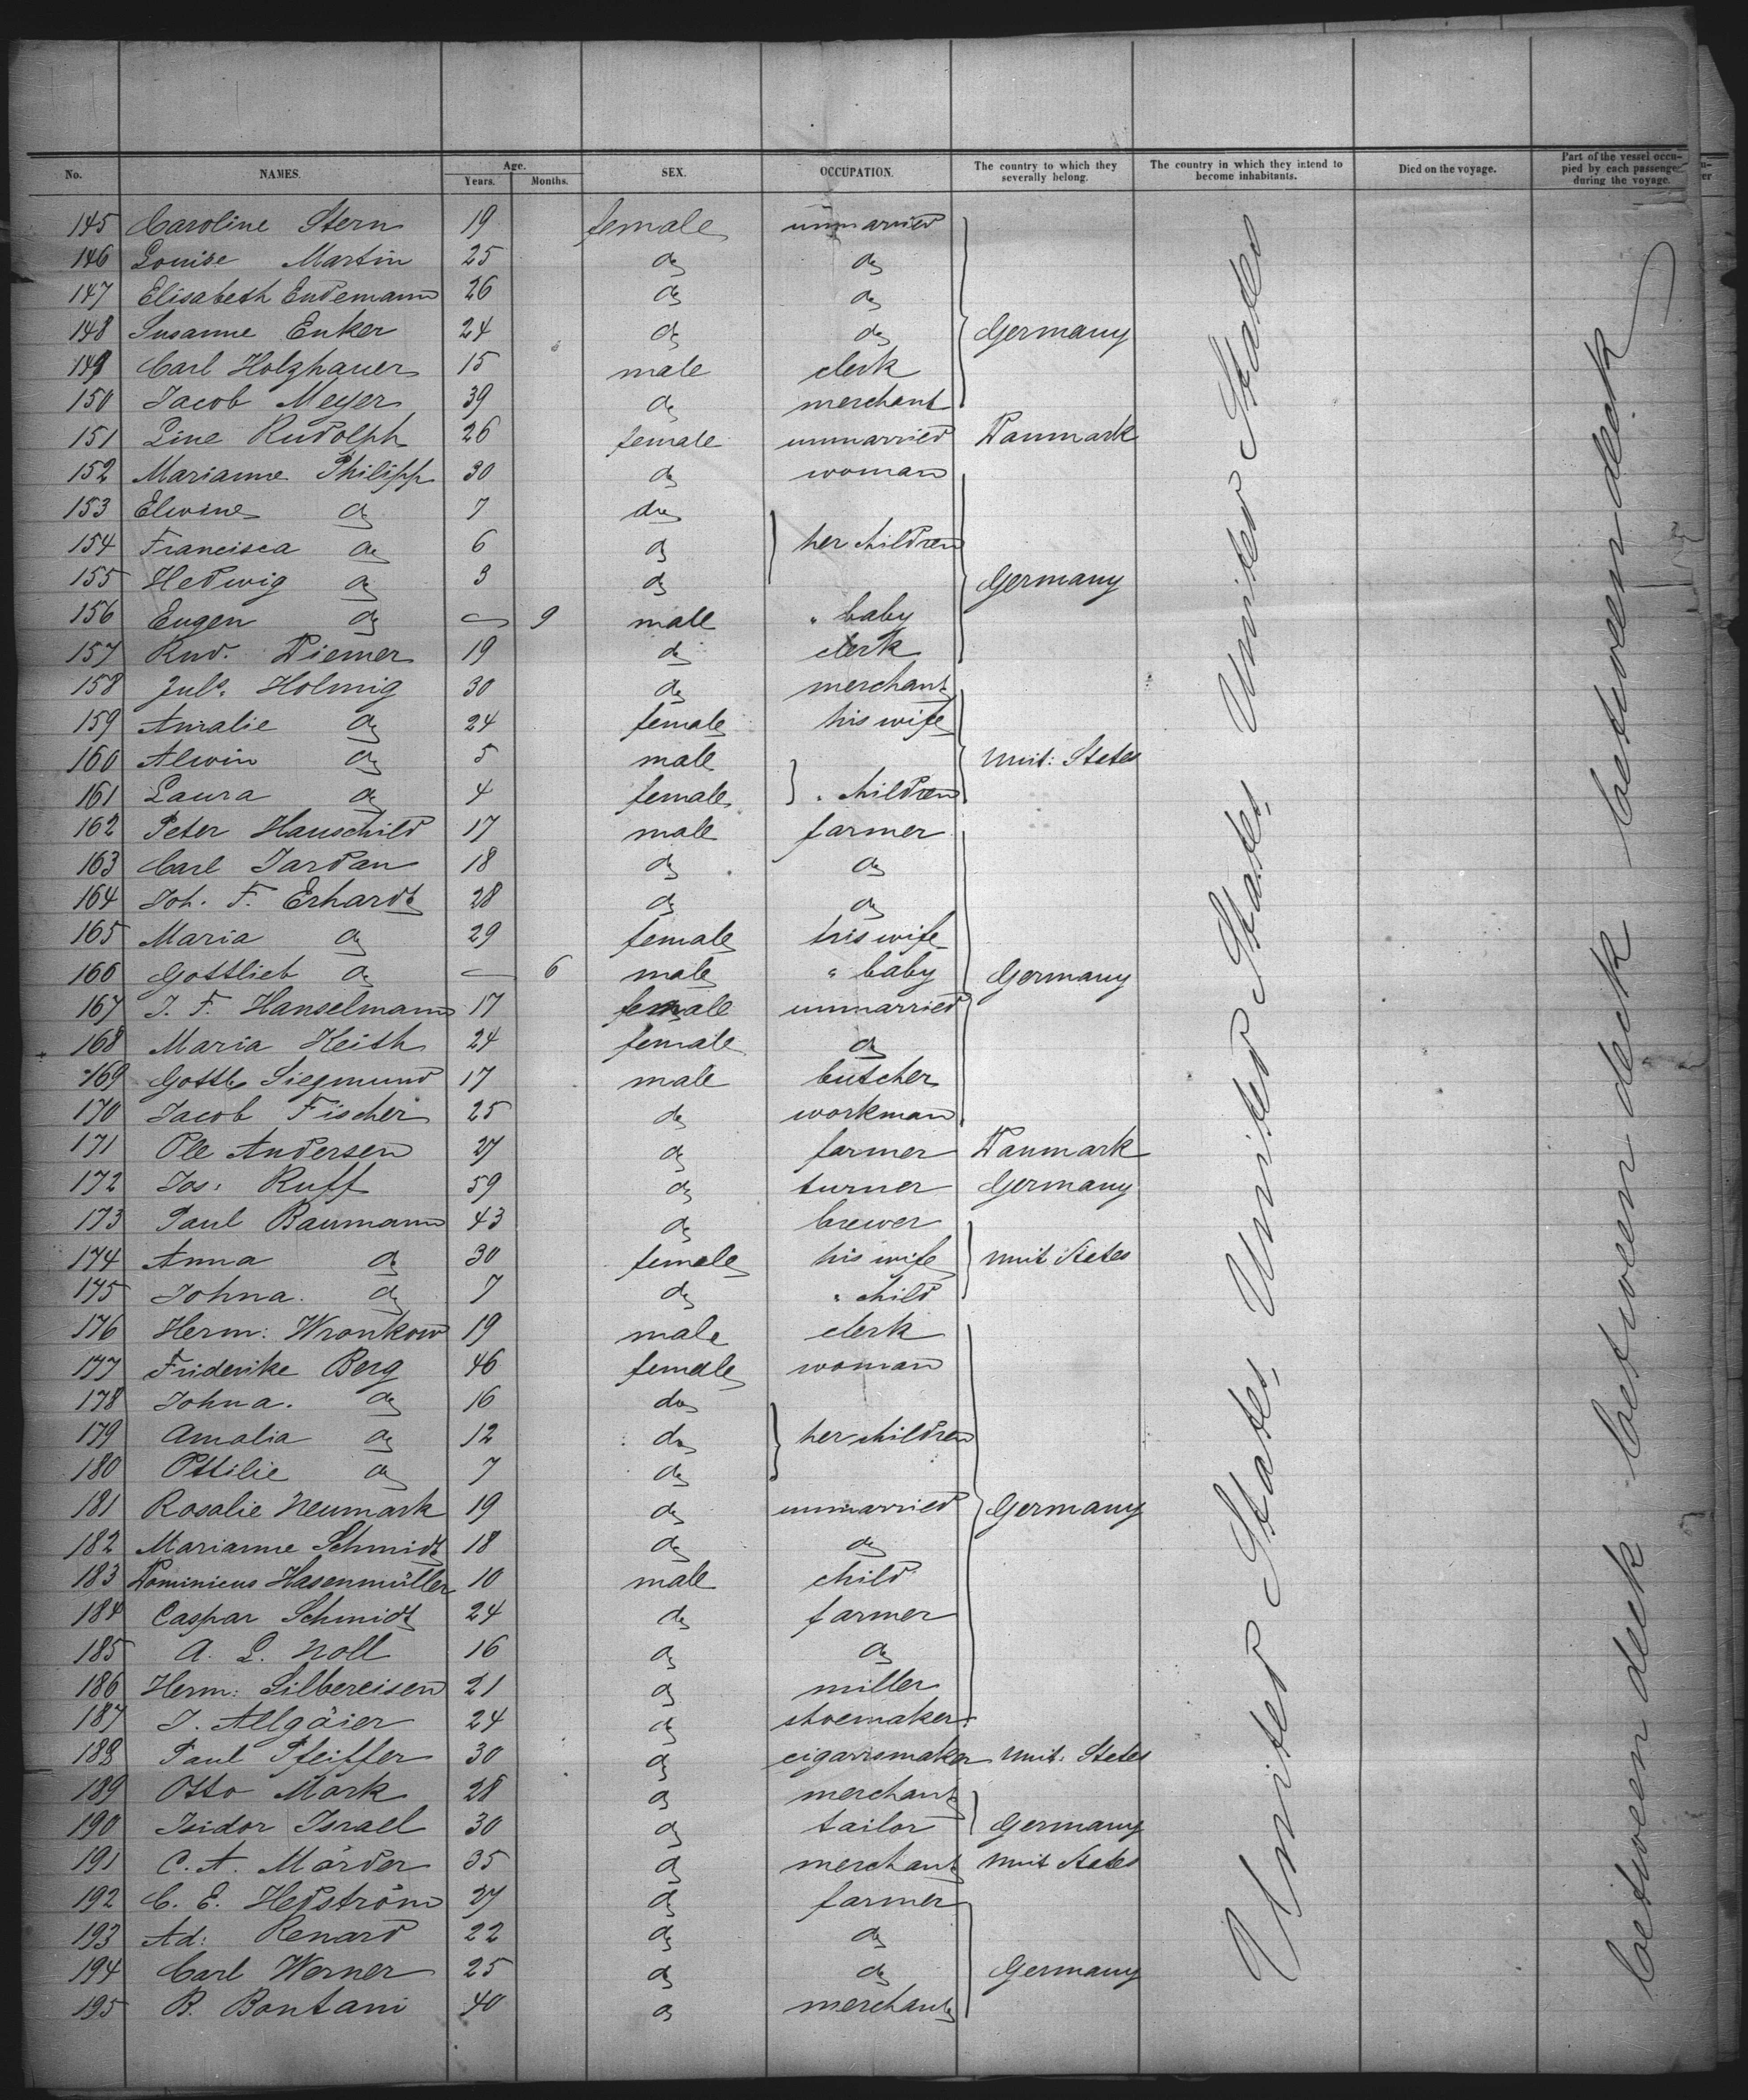 No. NAMES. Age. Years. Months. SEX. OCCUPATION. The country to which they severally belong. The country in which they intend to become inhabitants. Died on the voyage. Part of the vessel occupied by each passenger during the voyage.
145 Caroline Stern 19 female unmarried
146 Louise Martin 25 do do
147 Elisabeth Endemann 26 do do
148 Susanne Enker 24 do do Germany
149 Carl Holzhauer 15 male clerk
150 Jacob Meyer 39 do merchant
151 Line Rudolph 26 female unmarried Danmark
152 Marianne Philipp 30 do woman
153 Elwine do 7 do
154 Francisca do 6 do her children
155 Hedwig do 3 do Germany
156 Eugen do — 9 male " baby
157 Rud. Diemer 19 do clerk
158 Juls. Holmig 30 do merchant
159 Amalie do 24 female his wife
160 Alwin do 5 male Unit: States
161 Laura do 4 female " children
162 Peter Hauschild 17 male farmer
163 Carl Jardan 18 do do
164 Joh. F. Erhardt 28 do do
165 Maria do 29 female his wife
166 Gottlieb do — 6 male " baby Germany
167 J. F. Hanselmann 17 female unmarried
168 Maria Keith 24 female do
169 Gottlb Siegmund 17 male butcher
170 Jacob Fischer 25 do workman
171 Ole Andersen 27 do farmer Danmark
172 Jos: Ruff 59 do turner Germany
173 Paul Baumann 43 do brewer
174 Anna do 30 female his wife Unit States
175 Johna. do 7 do " child
176 Herm: Wronkow 19 male clerk
177 Friderike Berg 46 female woman
178 Johna. do 16 do
179 Amalia do 12 do her children
180 Ottilie do 7 do
181 Rosalie Neumark 19 do unmarried Germany
182 Marianne Schmidt 18 do do
183 Dominicus Hasenmüller 10 male child
184 Caspar Schmidt 24 do farmer
185 A. L. Noll 16 do do
186 Herm: Silbereisen 21 do miller
187 J. Allgäier 24 do shoemaker
188 Paul Pfeiffer 30 do cigarrsmaker Unit: States
189 Otto Mark 28 do merchant
190 Isidor Israel 30 do tailor Germany
191 C. A. Mörder 35 do merchant Unit States
192 C. E. Hedström 27 do farmer
193 Ad: Renard 22 do do
194 Carl Werner 25 do do Germany
195 B. Bontani 40 do merchant
United States United States United States
between deck between deck between deck